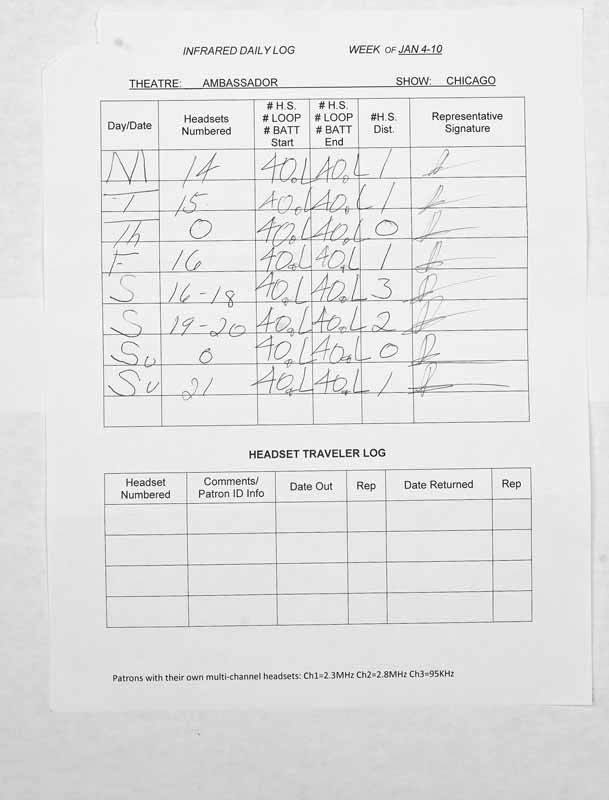 INFRARED DAILY LOG WEEK OF JAN 4-10
THEATRE: AMBASSADOR SHOW: CHICAGO
Day/Date Headsets Numbered # H.S. # LOOP # BATT Start # H.S. # LOOP # BATT End #H.S. Dist. Representative Signature
M 14 40.L 40.L 1
T 15 40.L 40.L 1
Th 0 40.L 40.L 0
F 16 40.L 40.L 1
S 16-18 40.L 40.L 3
S 19-20 40.L 40.L 2
Su 0 40.L 40.L 0
Su 21 40.L 40.L 1
HEADSET TRAVELER LOG
Headset Numbered Comments/ Patron ID Info Date Out Rep Date Returned Rep
Patrons with their own multi-channel headsets: Ch1=2.3MHz Ch2=2.8MHz Ch3=95KHz